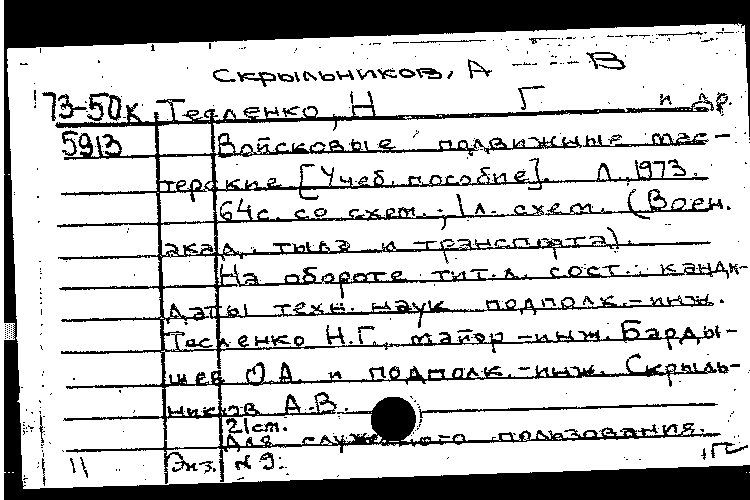 Скрыльников, А В
73-50к Тесленко, Н Г и др.
5913 Войсковые подвижные мас-
терские [Учеб. пособие]. Л., 1973.
64с. со схем.; 1л. схем. (Воен.
акад. тыла и транспорта).
На обороте тит. л. сост.: канди-
даты техн. наук подполк.-инж.
Тесленко Н.Г., майор-инж. Барды-
шев О.А. и подполк.-инж. Скрыль-
ников А.В.
21см.
Для служебного пользования.
11 Экз. №9.